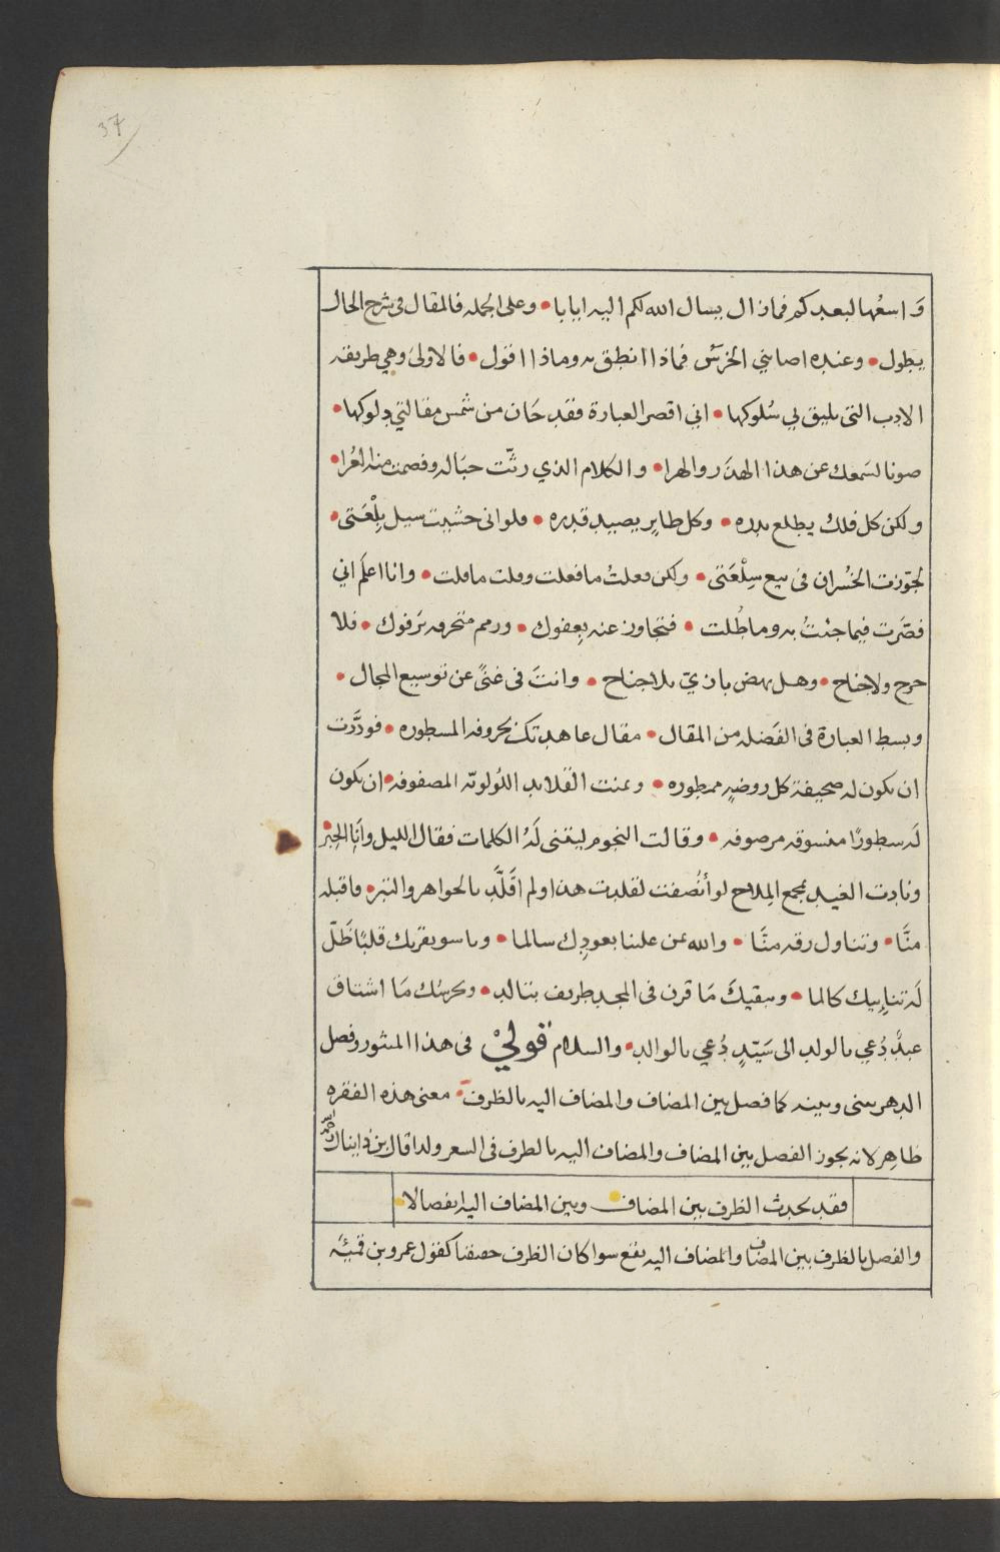 37
وَاسعُها لبعدكم فماذ ال يسال الله لكم اليه ايابا • وعلى الجمله فالمقال فى شرح الحال
يطول • وعنده اصابني الخرَسُ فماذا انطق به وماذا اقول • فالاولى وهي طريقه
الادب التى يليق بي سُلوكها • اني اقصر العبارة فقد حَان من شمس مقالتي دلوكها •
صونا لسَمعك عن هذا الهذَر والهرا • والكلام الذي رثّت حبَاله وفصمت منه العُرا •
ولكن كل فلك يطلع بدره • وكل طاير يصيد قدره • فلو انى خشيت سيل بِلْغَتى •
لجوزت الخُسران فى بيع سِلْعَتى • ولكن فعلتُ ما فعلت وقلت ما قلت • وانا اعلَم اني
قصَّرت فيما جئتُ به وما طُلت • فتجاوز عنه بعفوك • ورمم متحرقه برَفوك • فلا
حرج ولا جناح • وهل ينهض بازيّ بلا جناح • وانتَ فى غنىً عن توسيع المجال •
وبسط العبارة فى الفَضله من المقال • مقال عاهدتك بحروفه المسطوره • فودَّت
ان يكون له صحيفة كل روضةٍ ممطوره • وتمنت القلايد اللولويّه المصفوفه • ان يكون
لَه سطورًا منسوقه مرصوفه • وقالت النجوم ليتنى لَهُ الكلمات فقال الليل وانَا الحِبر •
ونادت الغيد بمجمع المِلاح لو أنصفت لقلدت هذا ولم اقَلَّد بالجواهر والتبر • فاقبله
منَّا • وتناول رقه منَّا • والله يمن علينا بعودِك سالما • وياسو بقربك قلبًا ظَلّ
لَه تنايِيك كالما • ويبقيكَ مَا قرن فى المجد طريف بتالد • ويحرسُك مَا اشتاق
عبدٌ دُعي بالولد الى سَيّدٍ دُعي بالوالد • والسلام قوليْ فى هذا المنثور وفصل
الدهر بينى وبينه كما فصل بين المضاف والمضاف اليه بالظرف • معنى هذه الفقره
ظاهر لانه يجوز الفصل بين المضاف والمضاف اليه بالظرف فى الشعر ولذا قال بن دانيال
فقد يحدث الظرف بين المضاف وبين المضاف اليه انفصالا
والفصل بالظرف بين المضاف والمضاف اليه يقع سوا كان الظرف حقيقنا كقول عمرو بن قميئه